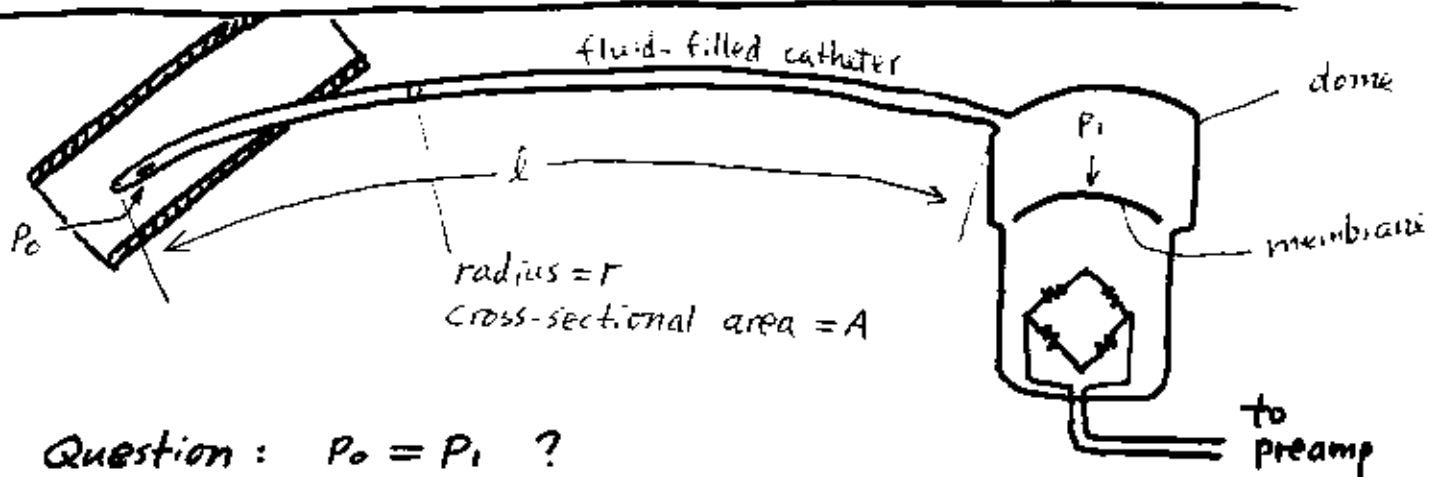 fluid-filled catheter
dome
P₁
l
P₀
membrane
radius = r
cross-sectional area = A
to
preamp
Question : P₀ = P₁ ?